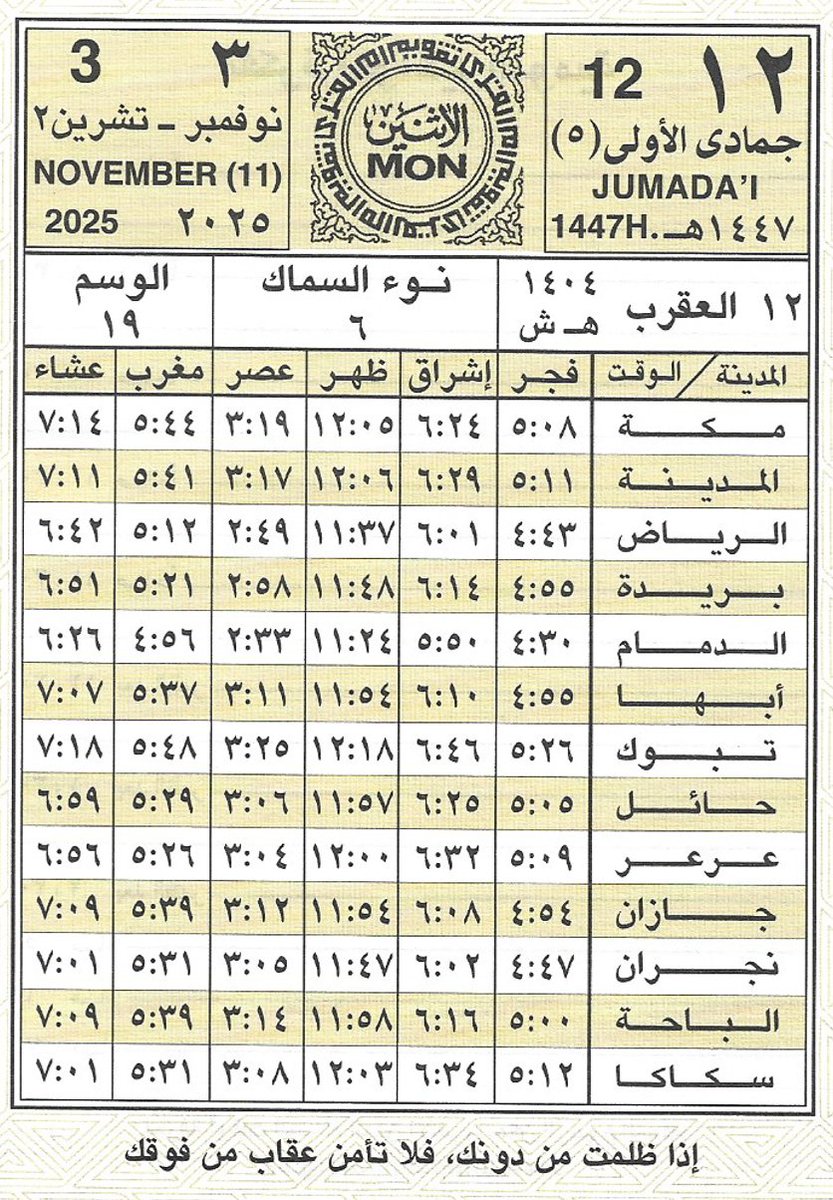 ١٢ 12
جمادى الأولى (٥)
JUMADA'I
1447H. ١٤٤٧هـ
الاثنين
MON
3 ٣
نوفمبر - تشرين٢
NOVEMBER (11)
2025 ٢٠٢٥
١٢ العقرب ١٤٠٤ هـ ش
نوء السماك
٦
الوسم
١٩
المدينة / الوقت فجر إشراق ظهر عصر مغرب عشاء
مكة ٥:٠٨ ٦:٢٤ ١٢:٠٥ ٣:١٩ ٥:٤٤ ٧:١٤
المدينة ٥:١١ ٦:٢٩ ١٢:٠٦ ٣:١٧ ٥:٤١ ٧:١١
الرياض ٤:٤٣ ٦:٠١ ١١:٣٧ ٢:٤٩ ٥:١٢ ٦:٤٢
بريدة ٤:٥٥ ٦:١٤ ١١:٤٨ ٢:٥٨ ٥:٢١ ٦:٥١
الدمام ٤:٣٠ ٥:٥٠ ١١:٢٤ ٢:٣٣ ٤:٥٦ ٦:٢٦
أبها ٤:٥٥ ٦:١٠ ١١:٥٤ ٣:١١ ٥:٣٧ ٧:٠٧
تبوك ٥:٢٦ ٦:٤٦ ١٢:١٨ ٣:٢٥ ٥:٤٨ ٧:١٨
حائل ٥:٠٥ ٦:٢٥ ١١:٥٧ ٣:٠٦ ٥:٢٩ ٦:٥٩
عرعر ٥:٠٩ ٦:٣٢ ١٢:٠٠ ٣:٠٤ ٥:٢٦ ٦:٥٦
جازان ٤:٥٤ ٦:٠٨ ١١:٥٤ ٣:١٢ ٥:٣٩ ٧:٠٩
نجران ٤:٤٧ ٦:٠٢ ١١:٤٧ ٣:٠٥ ٥:٣١ ٧:٠١
الباحة ٥:٠٠ ٦:١٦ ١١:٥٨ ٣:١٤ ٥:٣٩ ٧:٠٩
سكاكا ٥:١٢ ٦:٣٤ ١٢:٠٣ ٣:٠٨ ٥:٣١ ٧:٠١
إذا ظلمت من دونك، فلا تأمن عقاب من فوقك